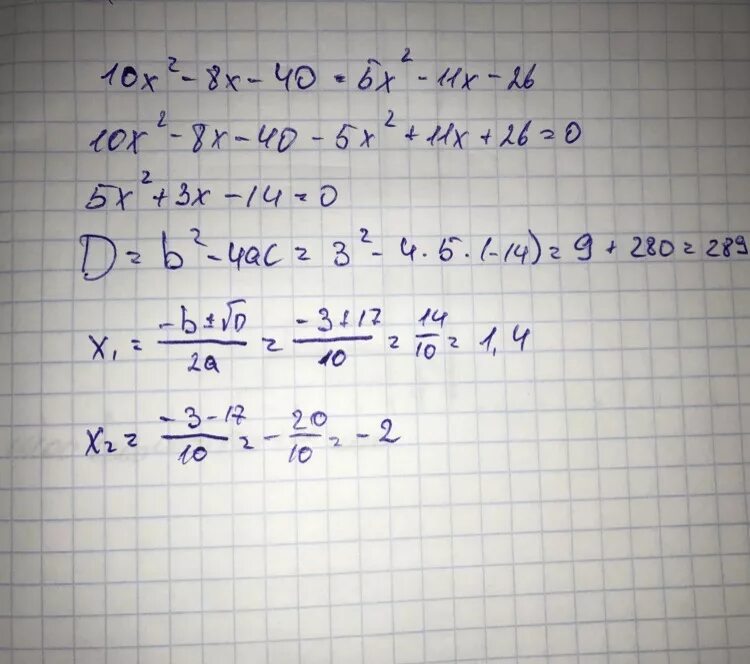 10x² - 8x - 40 = 5x² - 11x - 26
10x² - 8x - 40 - 5x² + 11x + 26 = 0
5x² + 3x - 14 = 0
D = b² - 4ac = 3² - 4 · 5 · (-14) = 9 + 280 = 289
x₁ = (-b ± √D)/(2a) = (-3 + 17)/10 = 14/10 = 1,4
x₂ = (-3 - 17)/10 = -20/10 = -2